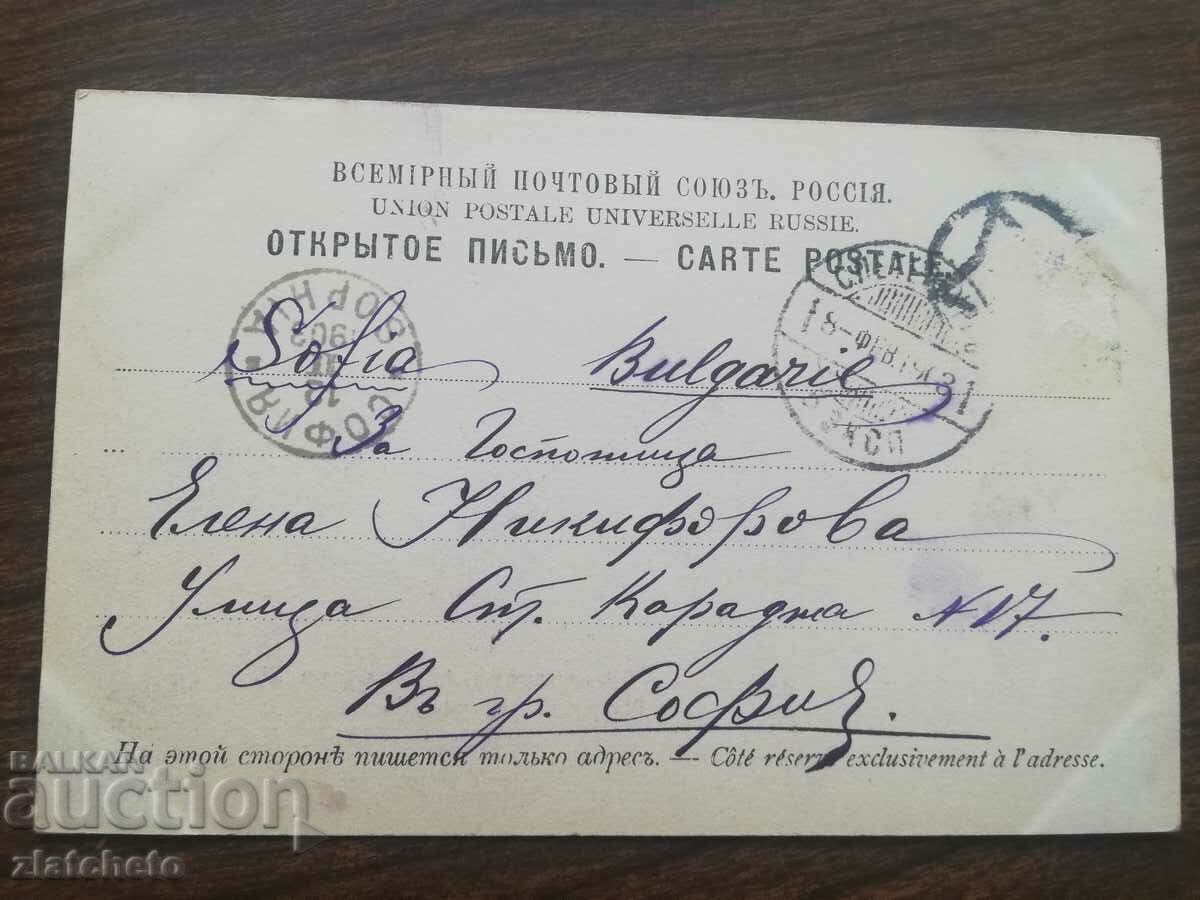 ВСЕМІРНЫЙ ПОЧТОВЫЙ СОЮЗЪ. РОССІЯ.
UNION POSTALE UNIVERSELLE RUSSIE.
ОТКРЫТОЕ ПИСЬМО. — CARTE POSTALE.
СОФИЯ
1903
8-ФЕВ.1903
Sofia Bulgarie
За Госпожица
Елена Никифорова
Улица Ст. Караджа N 17.
Въ гр. София.
На этой сторонѣ пишется только адресъ. — Côté réservé exclusivement à l'adresse.
BALKAN
auction
zlatcheto